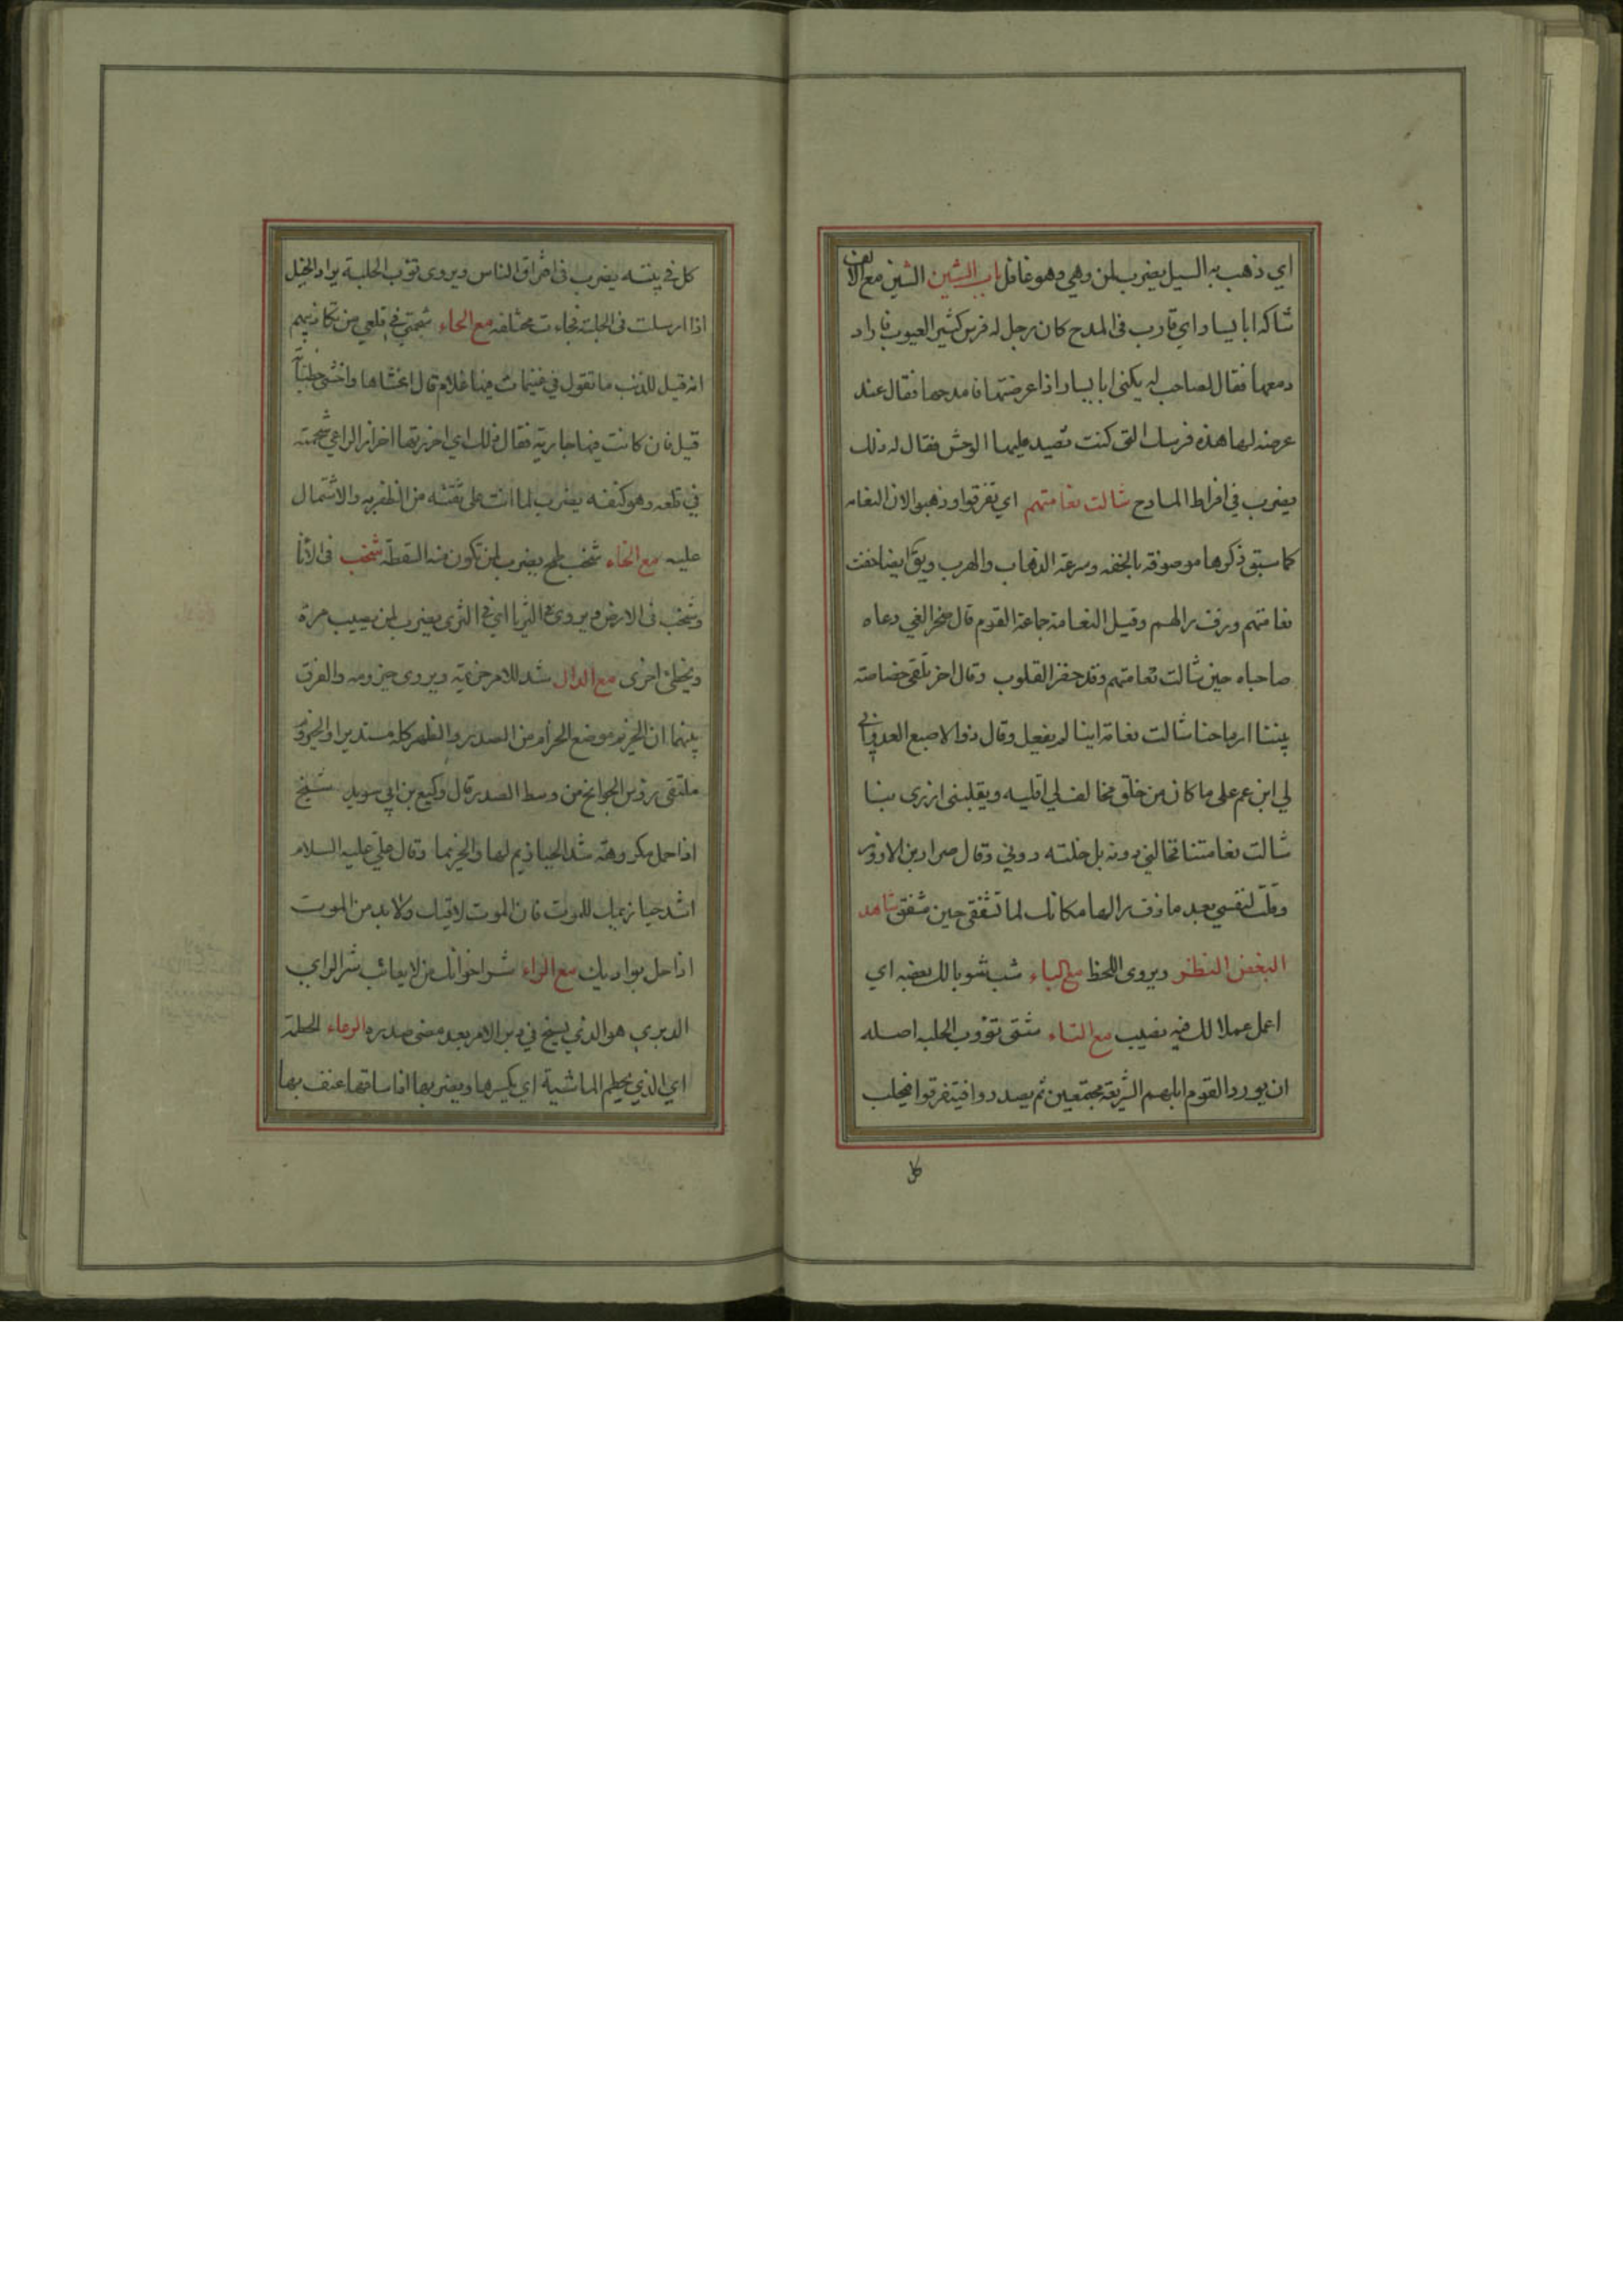 اي ذهب به السيل يضرب لمن دهي وهو غافل باب الشين الشين مع الالف
شاكه ابا يسار اي قارب في المدح كان رجل له فرس كثير العيوب فاراد
فقال لصاحب له يكنى ابا يسار اذا عرضتها فامدحها فقال عند
عرضه لها هذه فرسك التي كنت تصيد عليها الوحش فقال له ذلك
يضرب في افراط المادح شالت نعامتهم اي تفرقوا وذهبوا لان النعامه
كما سبق ذكرها موصوفة بالخفه وسرعة الذهاب والهرب ويق ايضا خفت
نعامتهم وزف رالهم وقيل النعامة جماعة القوم قال صخر الغي دعاه
صاحباه حين شالت نعامتهم وقد حفز القلوب وقال اخر تلقى خصاصة
بيننا ارماحنا شالت نعامة اينا لم يفعل وقال ذو الاصبع العدواني
لي ابن عم على ما كان من خلق مخالف لي اقليه ويقليني ازرى بنا
شالت نعامتنا فخالني دونه بل خلته دوني وقال ضرار بن الازور
وقلت لنفسي بعد ما زف رالها مكانك لما تشفقي حين مشفق شاهد
البغض النظر ويروى اللحظ مع الباء شب شوبا لك بعضه اي
اعمل عملا لك فيه نصيب مع التاء شتى تؤوب الحلبه اصله
ان يورد القوم ابلهم الشريعة مجتمعين ثم يصدروا فيتفرقوا فيحلب
كل
كل في بيته يضرب في افتراق الناس ويروى تؤب الحلبة يراد الخيل
اذا ارسلت في الحلبة فجاءت مختلفه مع الحاء شحمتي في قلعي من تكاذيبهم
انه قيل للذئب ما تقول في غنيمات فيها غلام قال اغشاها واخشى
قيل فان كانت فيها جارية فقال ذلك اي احرزتها احراز الراعي شحمته
في قلعه وهو كنفه يضرب لما انت على ثقته من الظفر به والاشتمال
عليه مع الخاء شخب طمح يضرب لمن تكون منه السقطة شخب في الانا
وشخب في الارض ويروى في الثريا اي في الثرى يضرب لمن يصيب مرة
ويخطئ اخرى مع الدال شد للامر حزيمه ويروى حيزومه والفرق
بينهما ان الحزيم موضع الحزام من الصدر والظهر كله مستديرا والحيزوم
ملتقى رؤس الجوانح من وسط الصدر قال وكيع بن ابي سويد شيخ
اذا حمل مكروهة شد الحيازيم لها والحزيما وقال علي عليه السلام
اشدد حيازيمك للموت فان الموت لاقيك ولا بد من الموت
اذا حل بواديك مع الراء شر اخوانك من لا يعاتب شر الراي
الدبري هو الذي يسنح في دبر الامر بعد مضى صدره الرعاء الحطمة
اي الذي يحطم الماشية اي يكسرها ويضربها اذا ساقها عنف بها